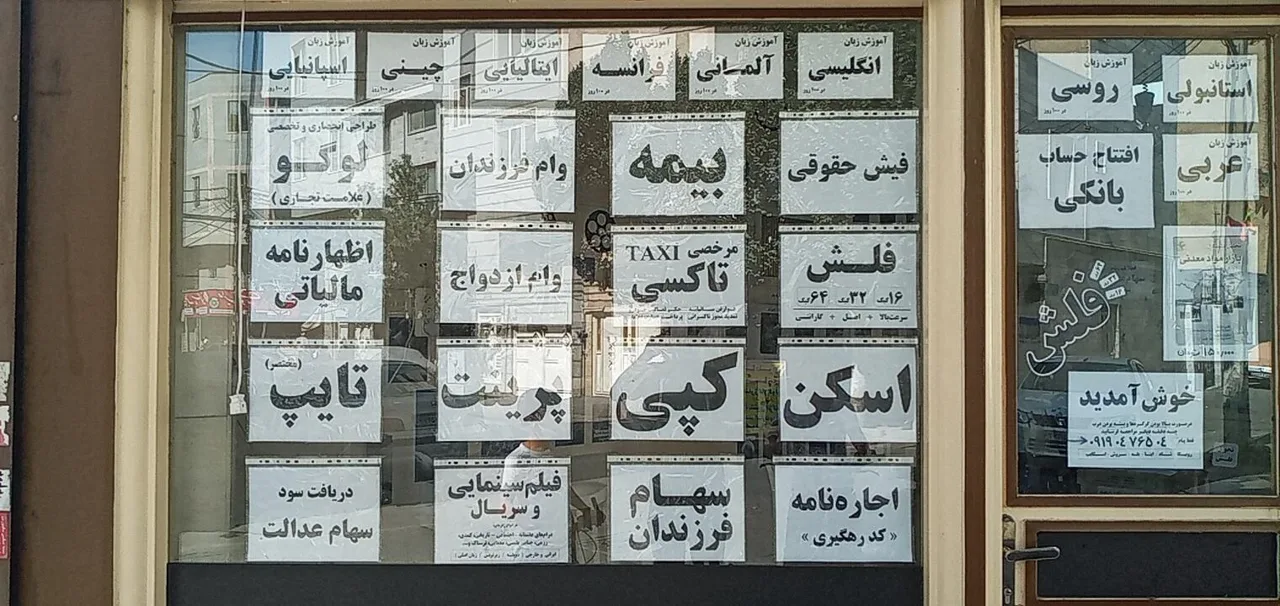 آموزش زبان
انگلیسی
در ۱۰۰ روز
آموزش زبان
آلمانی
در ۱۰۰ روز
آموزش زبان
فرانسه
در ۱۰۰ روز
آموزش زبان
ایتالیایی
در ۱۰۰ روز
آموزش زبان
چینی
در ۱۰۰ روز
آموزش زبان
اسپانیایی
در ۱۰۰ روز
فیش حقوقی
بیمه
وام فرزندان
طراحی انحصاری و تخصصی
لوگو
( علامت تجاری )
فلش
۱۶گیگ ۳۲گیگ ۶۴گیگ
سرعت بالا + اصل + گارانتی
مرخصی TAXI
تاکسی
وام ازدواج
اظهارنامه
مالیاتی
اسکن
کپی
پرینت
تایپ (مختصر)
اجاره‌نامه
« کد رهگیری »
سهام
فرزندان
فیلم سینمایی
و سریال
دریافت سود
سهام عدالت
آموزش زبان
استانبولی
در ۱۰۰ روز
آموزش زبان
روسی
در ۱۰۰ روز
آموزش زبان
عربی
در ۱۰۰ روز
افتتاح حساب
بانکی
بازار مواد معدنی
۱۵۰,۰۰۰ تومان
فلش
خوش آمدید
فقط پیام
۰۹۱۹۰۴۷۶۵۰۴